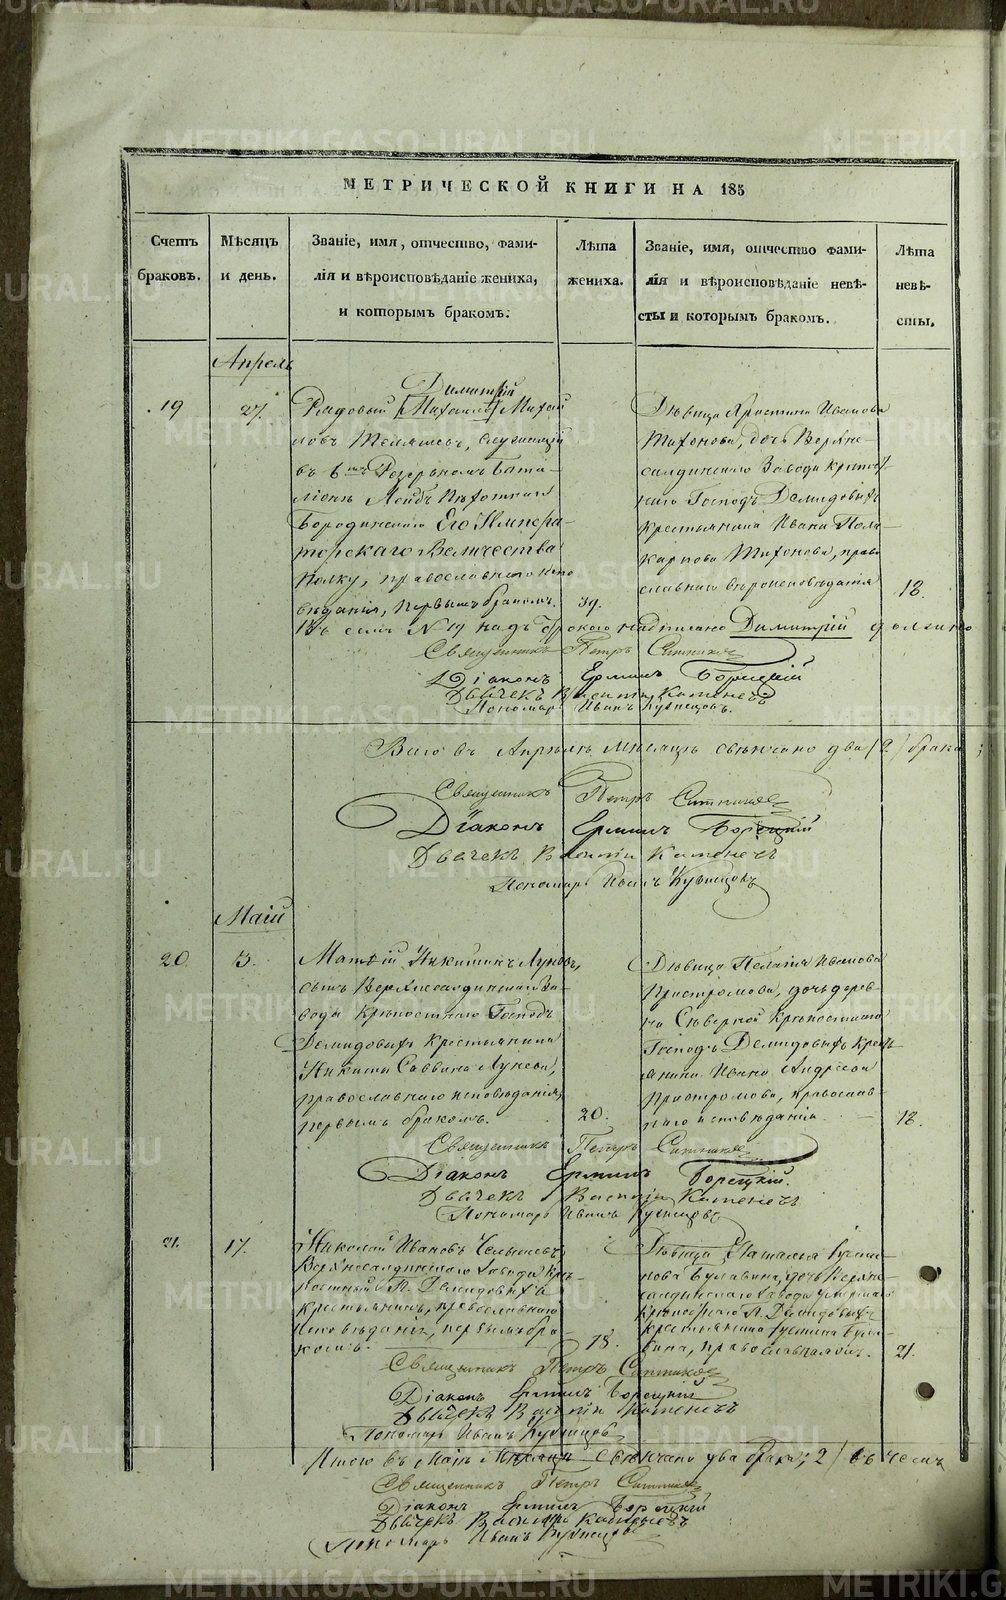 METRIKI.GASO-URAL.RU
МЕТРИЧЕСКОЙ КНИГИ НА 185
Счетъ браковъ.
Мѣсяцъ и день.
Званіе, имя, отчество, фами-
лія и вѣроисповѣданіе жениха,
и которымъ бракомъ.
Лѣта жениха.
Званіе, имя, отчество фами-
лія и вѣроисповѣданіе невѣ-
сты и которымъ бракомъ.
Лѣта невѣ-
сты.
Апрель
19
27.
Димитрій
Рядовый Михаилъ Михай
ловъ служащій
въ 6мъ Резервномъ Бата-
ліонѣ Пѣхотнаго
Бородинскаго Его Импера-
торскаго Величества
полку, православнаго испо
вѣданія, первымъ бракомъ.
39.
Дѣвица Христина Иванова
Тихонова, дочь Верхне-
салдинскаго Завода крѣпост
наго Господъ Демидовыхъ
крестьянина Ивана Поли-
карпова Тихонова, право
славнаго вѣроисповѣданія
18.
Въ семъ N 19 надъ строкою надписано Димитрій
Священникъ Петръ Ситниковъ
Діаконъ Ермилъ Борецкій
Дьячекъ Василій
Пономарь Иванъ Кузнецовъ.
Всего въ Апрѣлѣ мѣсяцѣ свѣнчано два /2/ брака;
Священникъ Петръ Ситниковъ
Діаконъ Ермилъ Борецкій
Дьячекъ Василій
Пономарь Иванъ Кузнецовъ
Маій
20.
13.
Матѳій Никитинъ Луновъ,
сынъ Верхнесалдинскаго За-
вода крѣпостнаго Господъ
Демидовыхъ крестьянина
Никиты Саввина Лунева,
православнаго исповѣданія,
первымъ бракомъ.
20.
Дѣвица Пелагія Иванова
дочь дерев-
ни Сѣверной крѣпостнаго
Господъ Демидовыхъ кресть-
янина Ивана Андреева
православ-
наго исповѣданія
18.
Священникъ Петръ Ситниковъ
Діаконъ Ермилъ Борецкій.
Дьячекъ Василій
Пономарь Иванъ Кузнецовъ
21.
17.
Николай Ивановъ
Верхнесалдинскаго завода крѣ-
постный Г. Демидовыхъ
крестьянинъ, православнаго
исповѣданія, первымъ бра
комъ.
18.
Дѣвица Наталья Устин-
нова Булавина, дочь Верхне
салдинскаго завода умершаго
крѣпостнаго Г. Демидовыхъ
крестьянина Устина Була-
вина, православнаго.
21.
Священникъ Петръ Ситниковъ
Діаконъ Ермилъ Борецкій
Дьячекъ Василій
Пономарь Иванъ Кузнецовъ
Итого въ Маіѣ мѣсяцѣ свѣнчано два брака; 2/ въ чемъ
Священникъ Петръ Ситниковъ
Діаконъ Ермилъ Борецкій
Дьячекъ Василій
Пономарь Иванъ Кузнецовъ